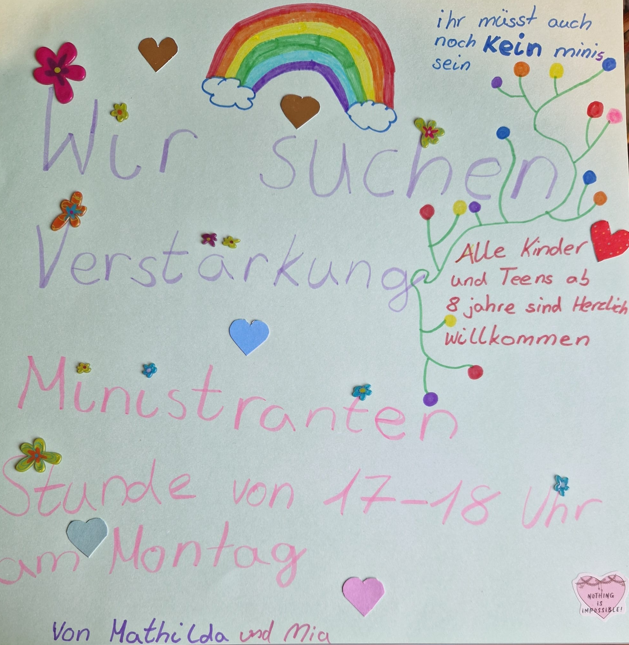 ihr müsst auch
noch Kein minis
sein
Wir suchen
Verstärkung
Alle Kinder
und Teens ab
8 jahre sind Herzlich
willkommen
Ministranten
Stunde von 17-18 Uhr
am Montag
NOTHING
IS
IMPOSSIBLE!
Von Mathilda und Mia